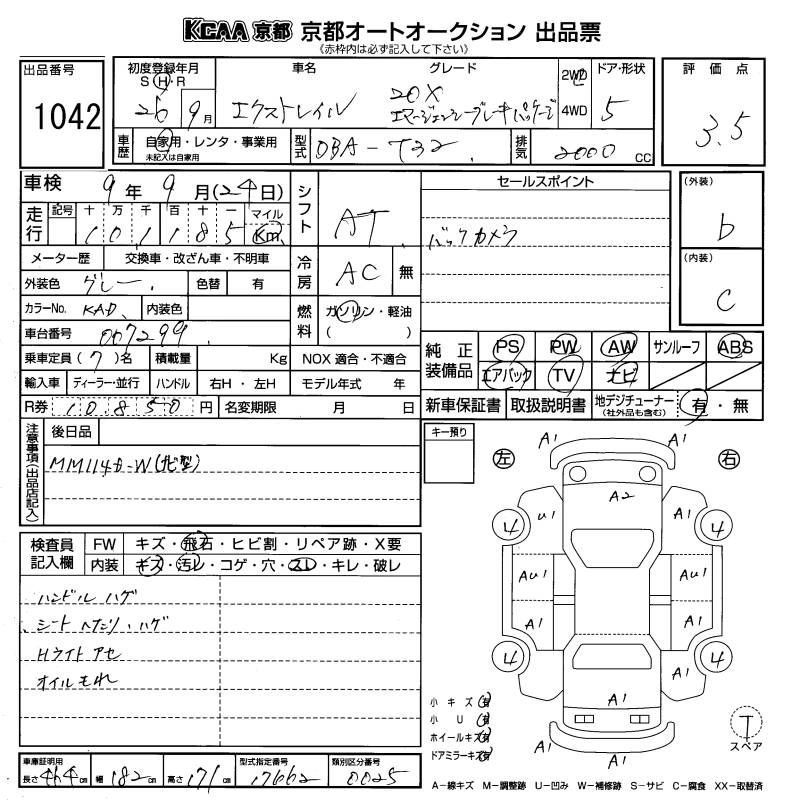 KCAA 京都 京都オートオークション 出品票
《赤枠内は必ず記入して下さい》
出品番号
1042
初度登録年月
S・H・R
26 9月
車名
エクストレイル
グレード
20X
エマージェンシーブレーキパッケージ
2WD
4WD
ドア・形状
5
評価点
3.5
車歴
自家用・レンタ・事業用
未記入は自家用
型式
DBA-T32
排気
2000 CC
車検
9年9月(24日)
シフト
AT
セールスポイント
バックカメラ
(外装)
b
(内装)
C
走行
記号 十 万 千 百 十 一 マイル
101185 Km
メーター歴 交換車・改ざん車・不明車
冷房
AC 無
外装色 グレー 色替 有
カラーNo. KAD 内装色
燃料
ガソリン・軽油
( )
車台番号 007299
乗車定員(7)名 積載量 Kg NOX 適合・不適合
輸入車 ディーラー・並行 ハンドル 右H・左H モデル年式 年
R券 10850円 名変期限 月 日
純正装備品
PS PW AW サンルーフ ABS
エアバック TV ナビ
新車保証書 取扱説明書 地デジチューナー
(社外品も含む)
有・無
注意事項(出品店記入)
後日品
MM114D-W(ナビ型)
キー預り
左 右
検査員記入欄
FW キズ・飛石・ヒビ割・リペア跡・X要
内装 キズ・汚レ・コゲ・穴・スレ・キレ・破レ
ハンドル ハゲ
シート ヘタリ・ハゲ
Hライト アセ
オイルもれ
A1 A1
A2
U1 A1
4 4
AU1 AU1
A1 A1
4 4
A1
A1
A1 A1
小キズ(有)
小U(有)
ホイールキズ(有)
ドアミラーキズ(有)
T
スペア
車庫証明用
長さ 464cm 幅 182cm 高さ 171cm
型式指定番号
17662
類別区分番号
0025
A-線キズ M-調整跡 U-凹み W-補修跡 S-サビ C-腐食 XX-取替済